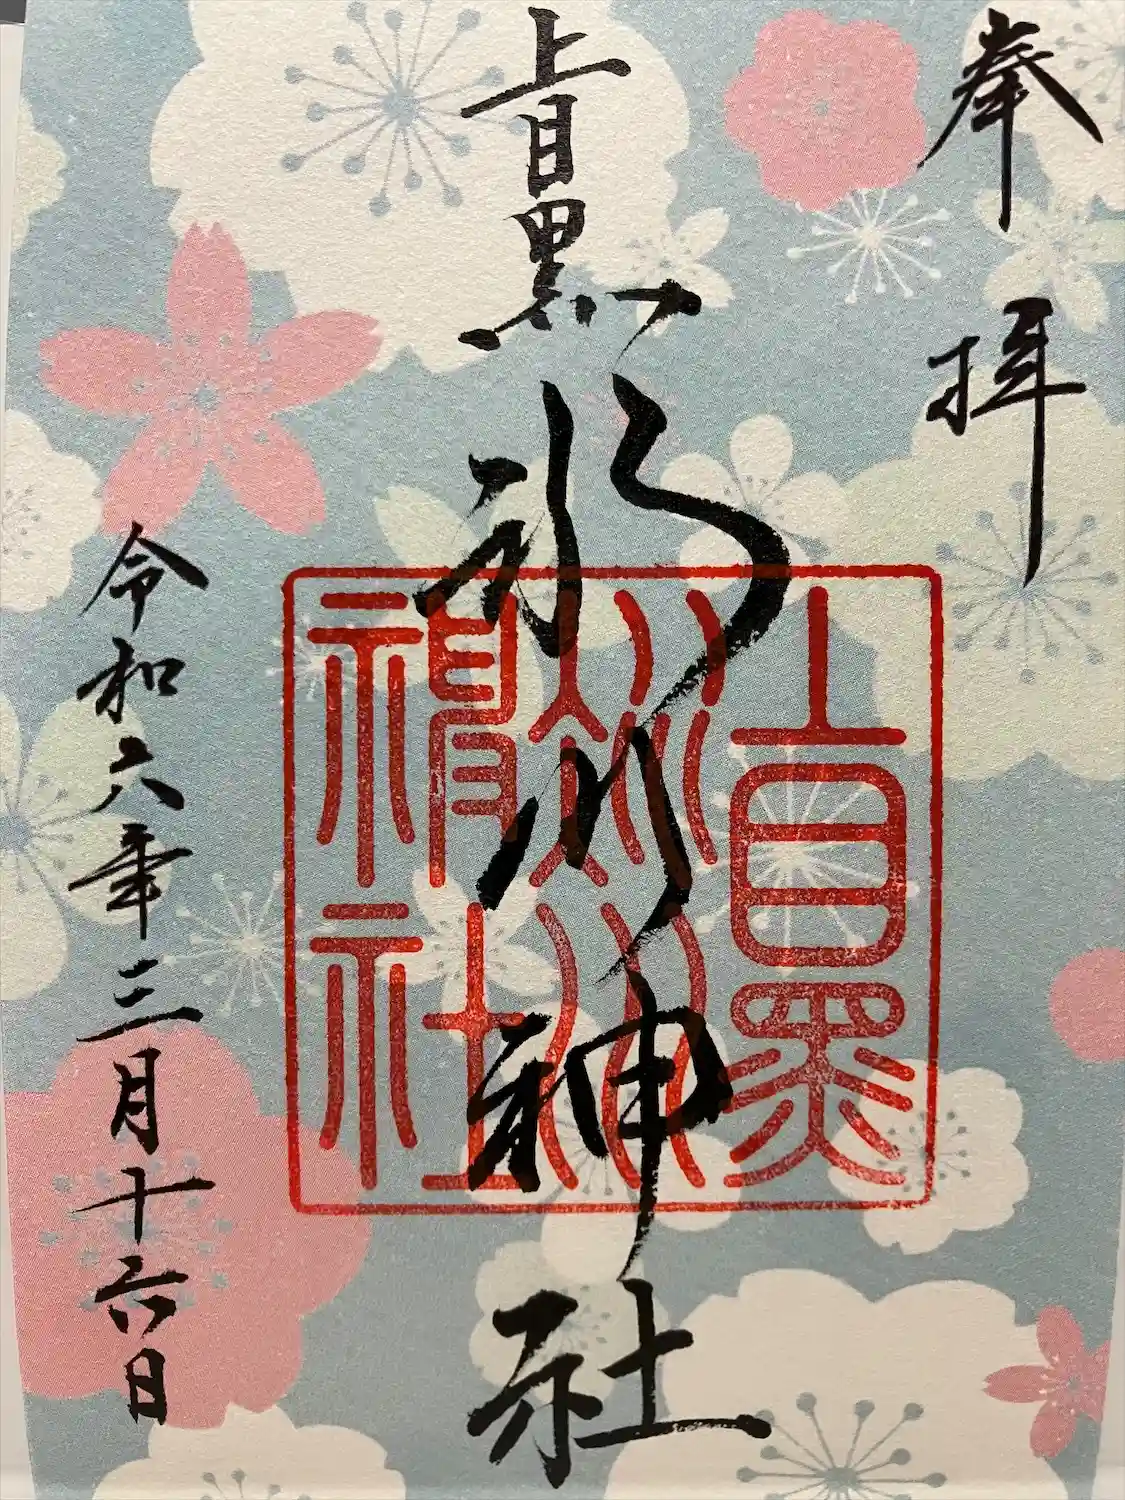 奉拝
上目黒氷川神社
上目黒
氷川
神社
令和六年三月十六日